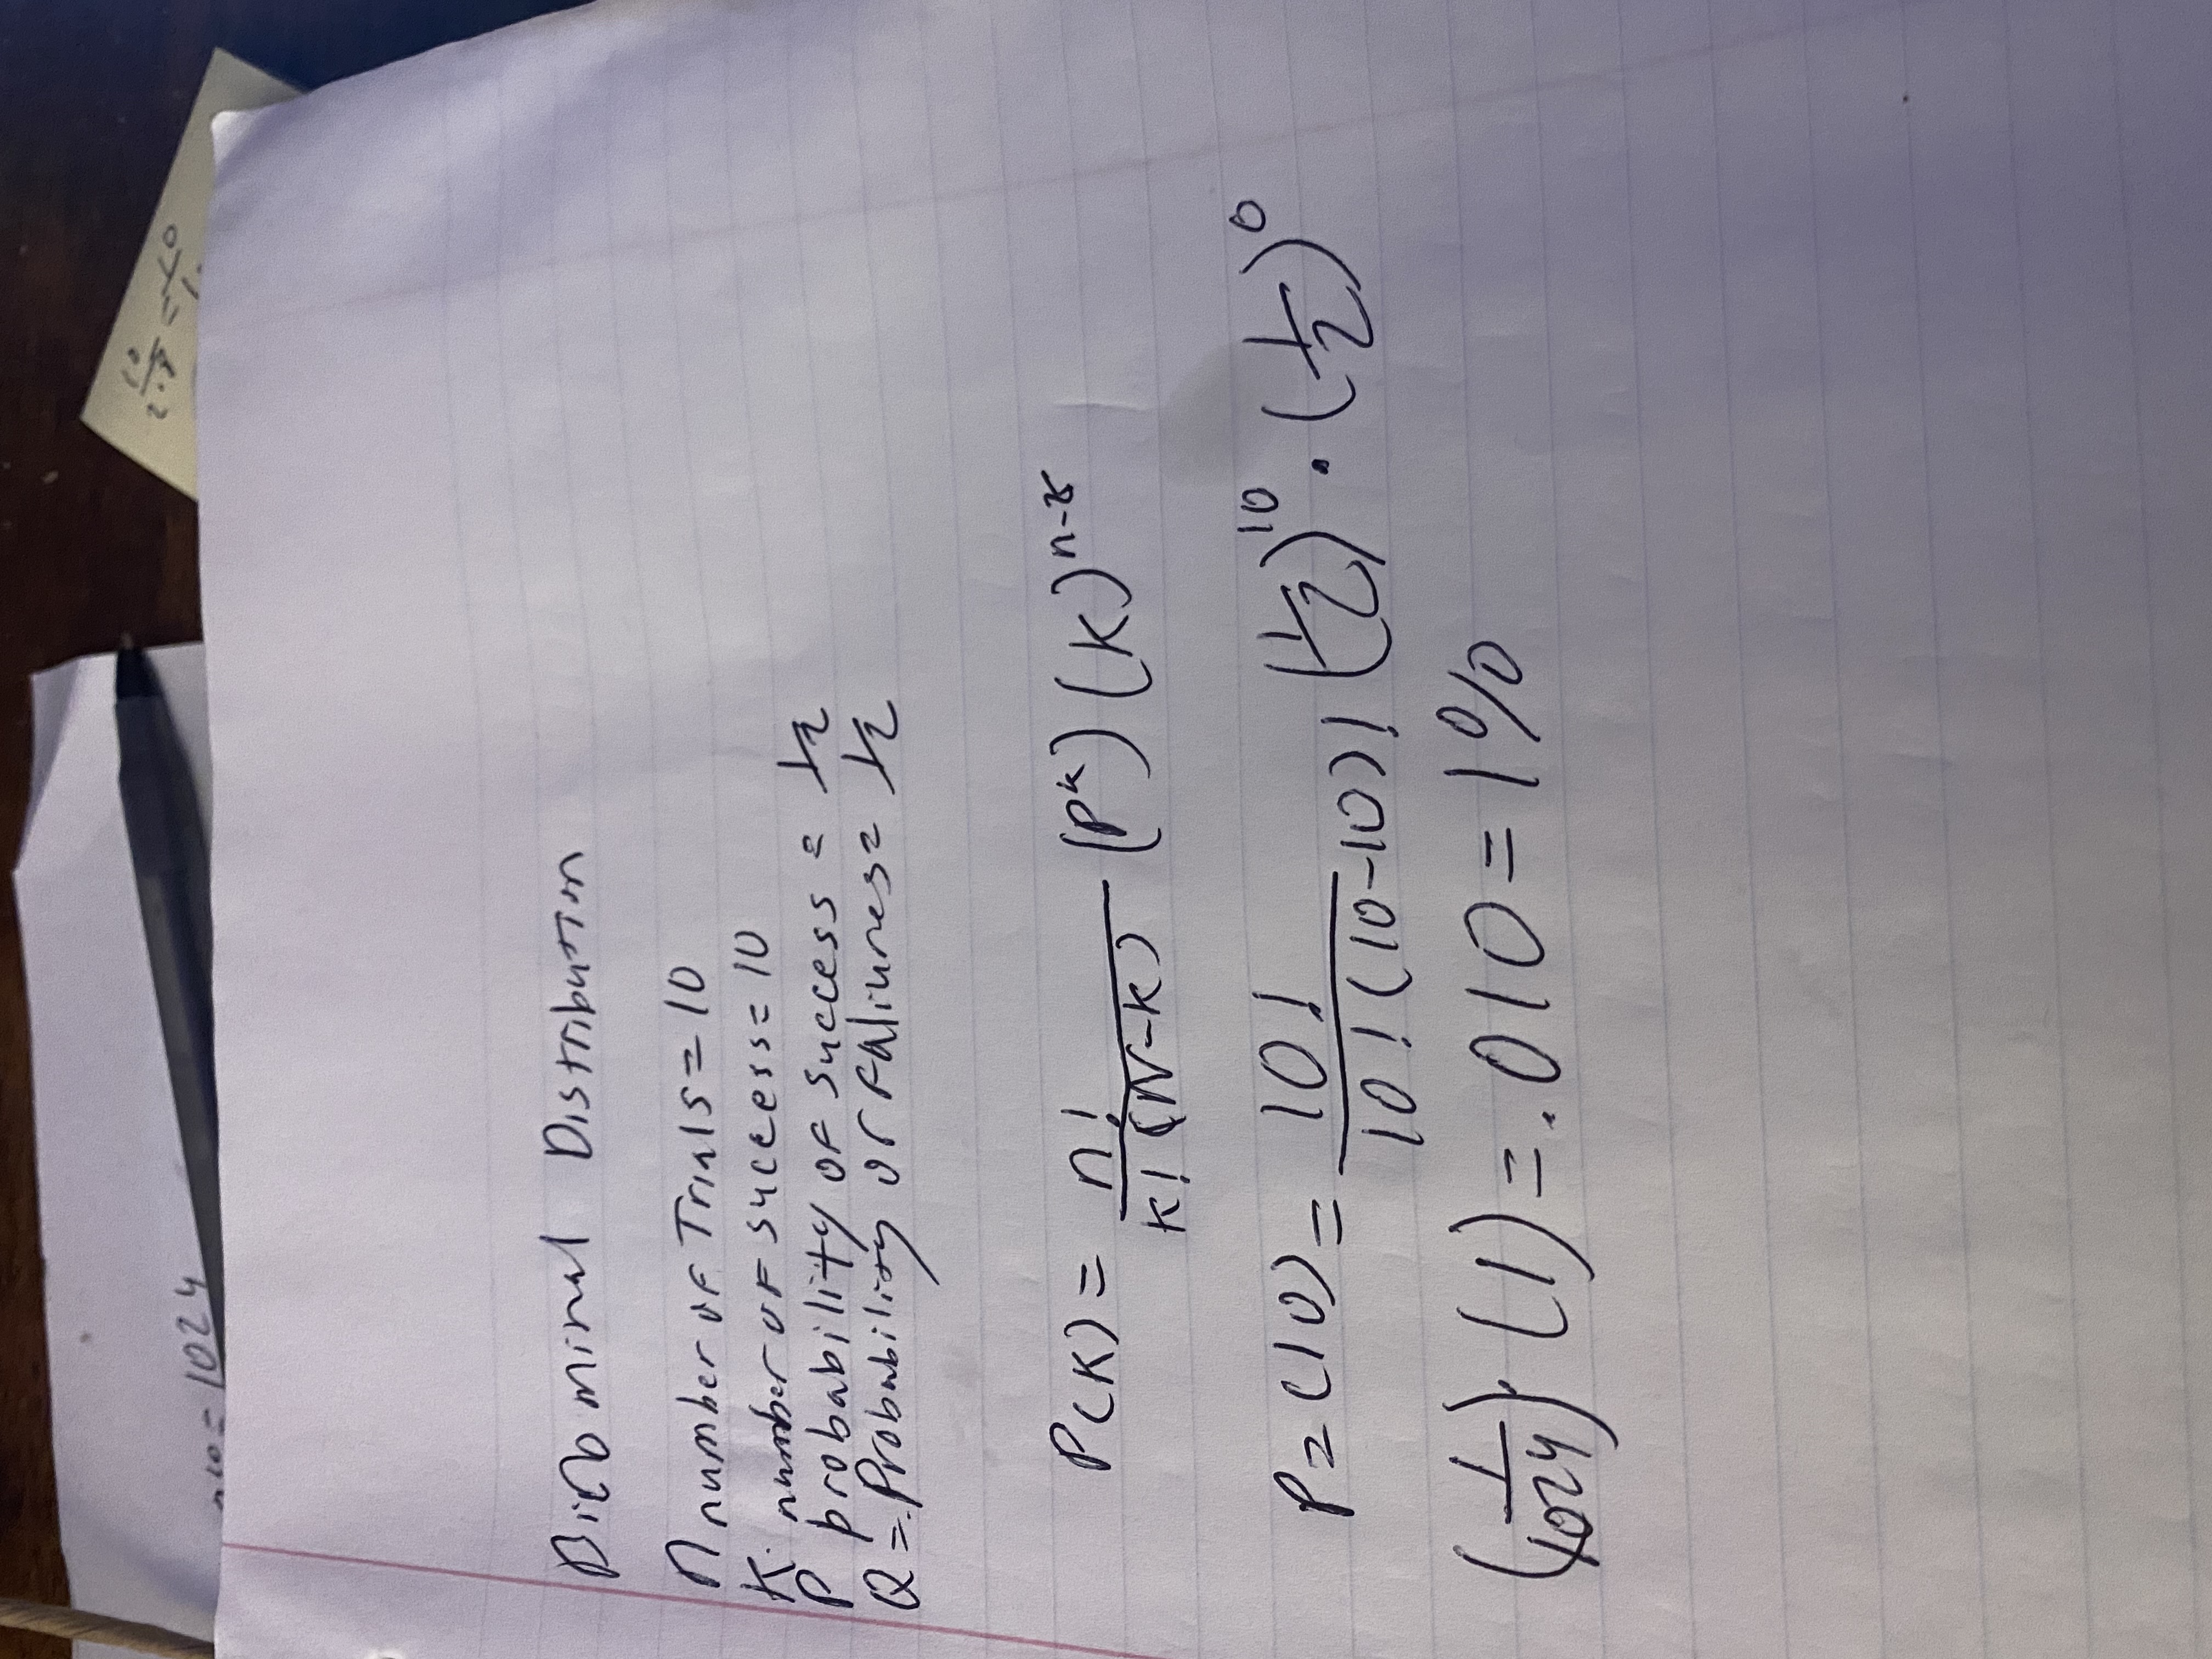 = 1024
10
2.
Binominal Distribution
n number of Trials = 10
K number of success = 10
P probability of success = 1/2
Q = Probability of faliures = 1/2
P(K) = n! / k! (N-K) (P^k) (K)^n-k
P=(10) = 10! / 10! (10-10)! (1/2)^10 · (1/2)^0
(1/1024) · (1) = .010 = 1%